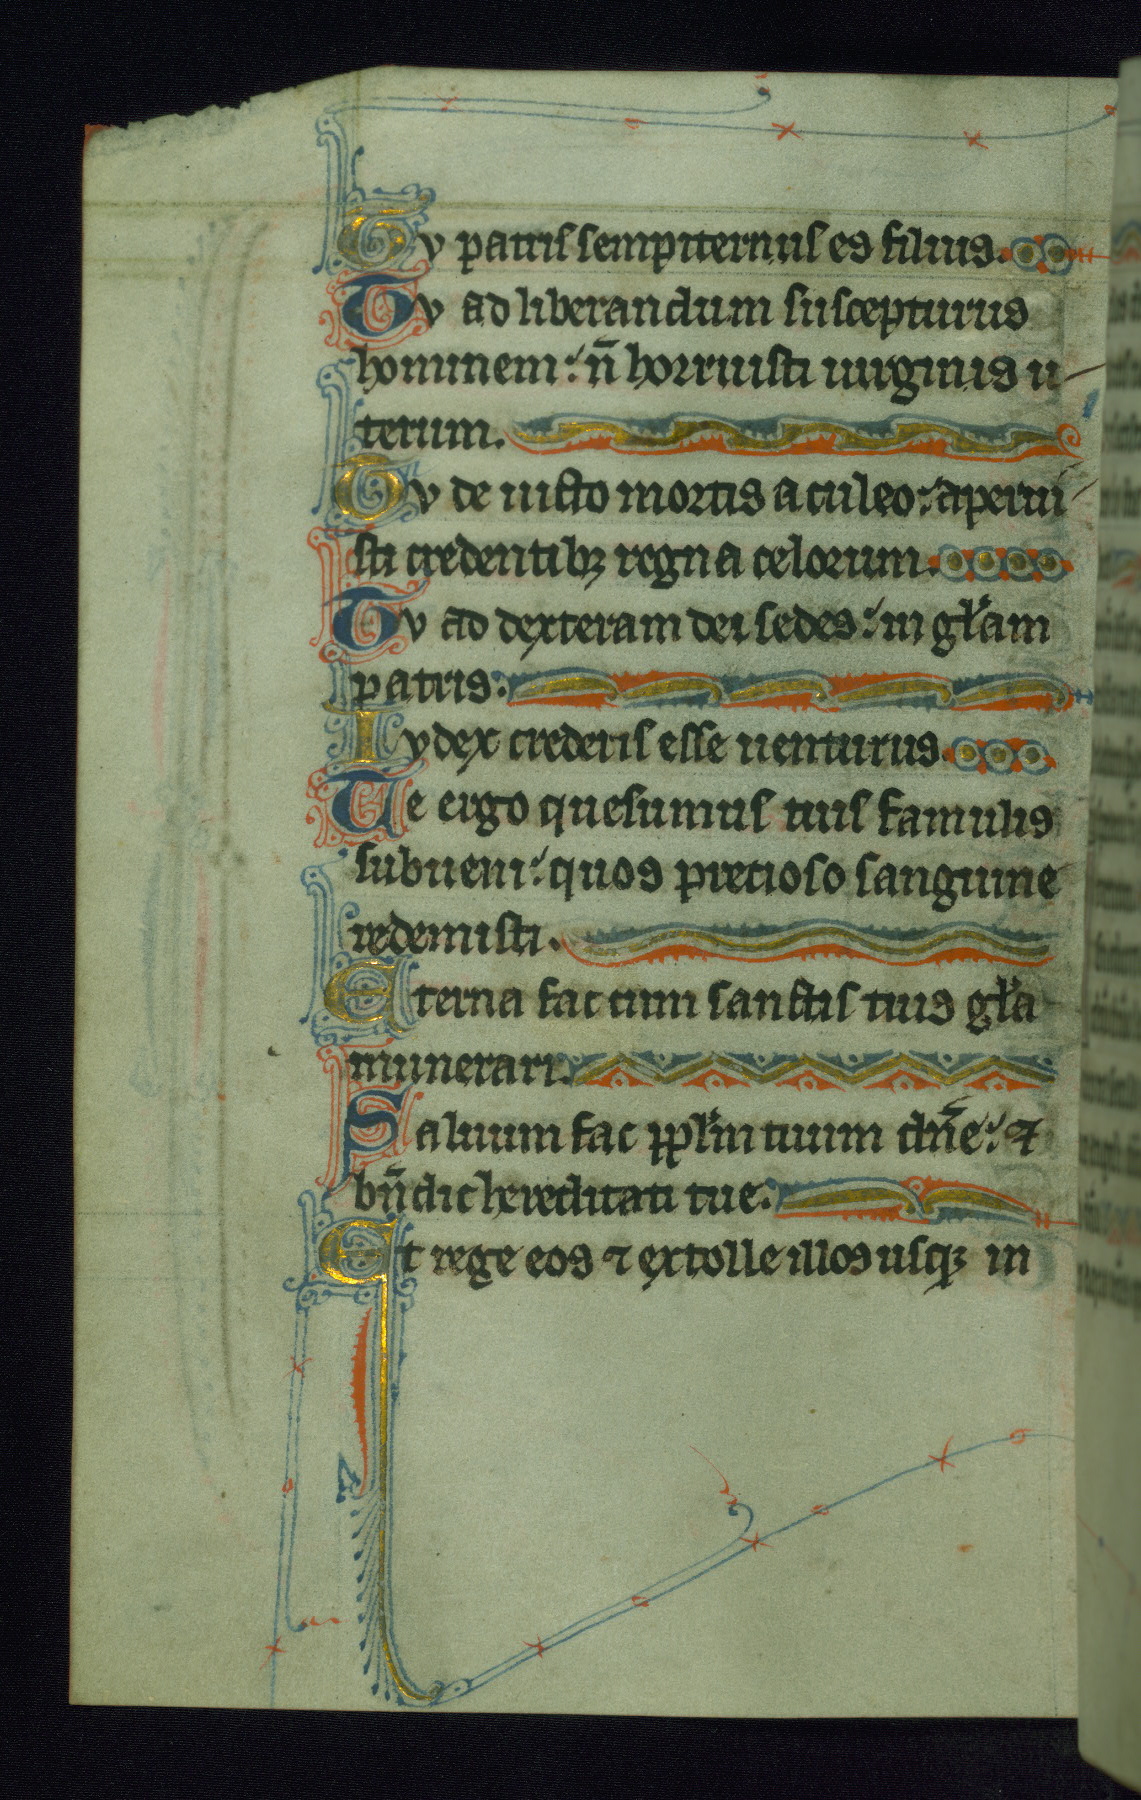 Tv patris sempiternus es filius.
Tv ad liberandum suscepturus
hominem: n̄ horruisti uirginis u
terum.
Tv de uicto mortis aculeo: aperui
sti credentibꝫ regna celorum.
Tv ad dexteram dei sedes: in gl̄am
patris.
Ivdex crederis esse uenturus.
Te ergo quesumus tuis famulis
subueni: quos precioso sanguine
redemisti.
Eterna fac cum sanctis tuis gl̄a
munerari.
Saluum fac pp̄lm tuum dn̄e: ⁊
bn̄dic hereditati tue.
Et rege eos ⁊ extolle illos usqꝫ in